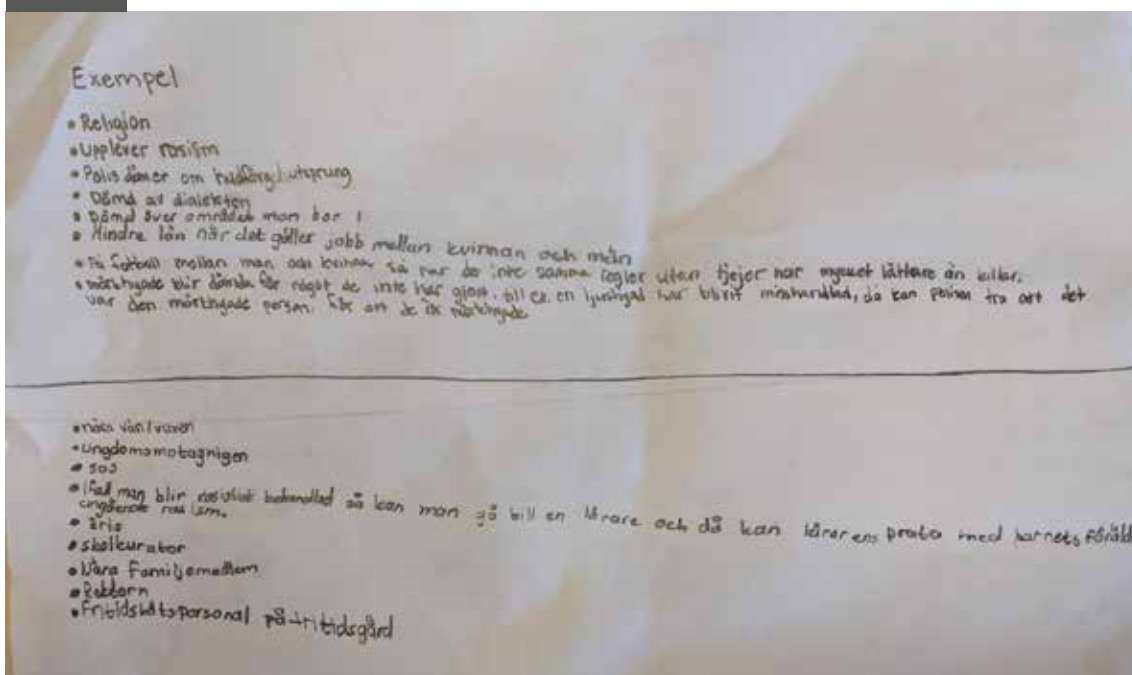 Exempel
• Religion
• Upplever rasism
• Polis dömer om hudfärg/utsprung
• Dömd av dialekten
• Dömd över området man bor i
• Mindre lön när det gäller jobb mellan kvinnan och män
• På fotboll mellan man och kvinna så har de inte samma regler utan tjejer har mycket lättare än killar.
• mörkhyade blir dömda för något de inte har gjort, till ex. en ljushyad har blivit misshandlad, då kan polisen tro att det
var den mörkhyade person, för att de är mörkhyade
• nära vän/vuxen
• ungdomsmotagnigen
• sos
• Ifall man blir rasistisk behandlad så kan man gå till en lärare och då kan lärarens prata med barnets föräld
angående rasism.
• skolkurator
• Våra Familjemedlem
• Rektorn
• Fritidspersonal på fritidsgård